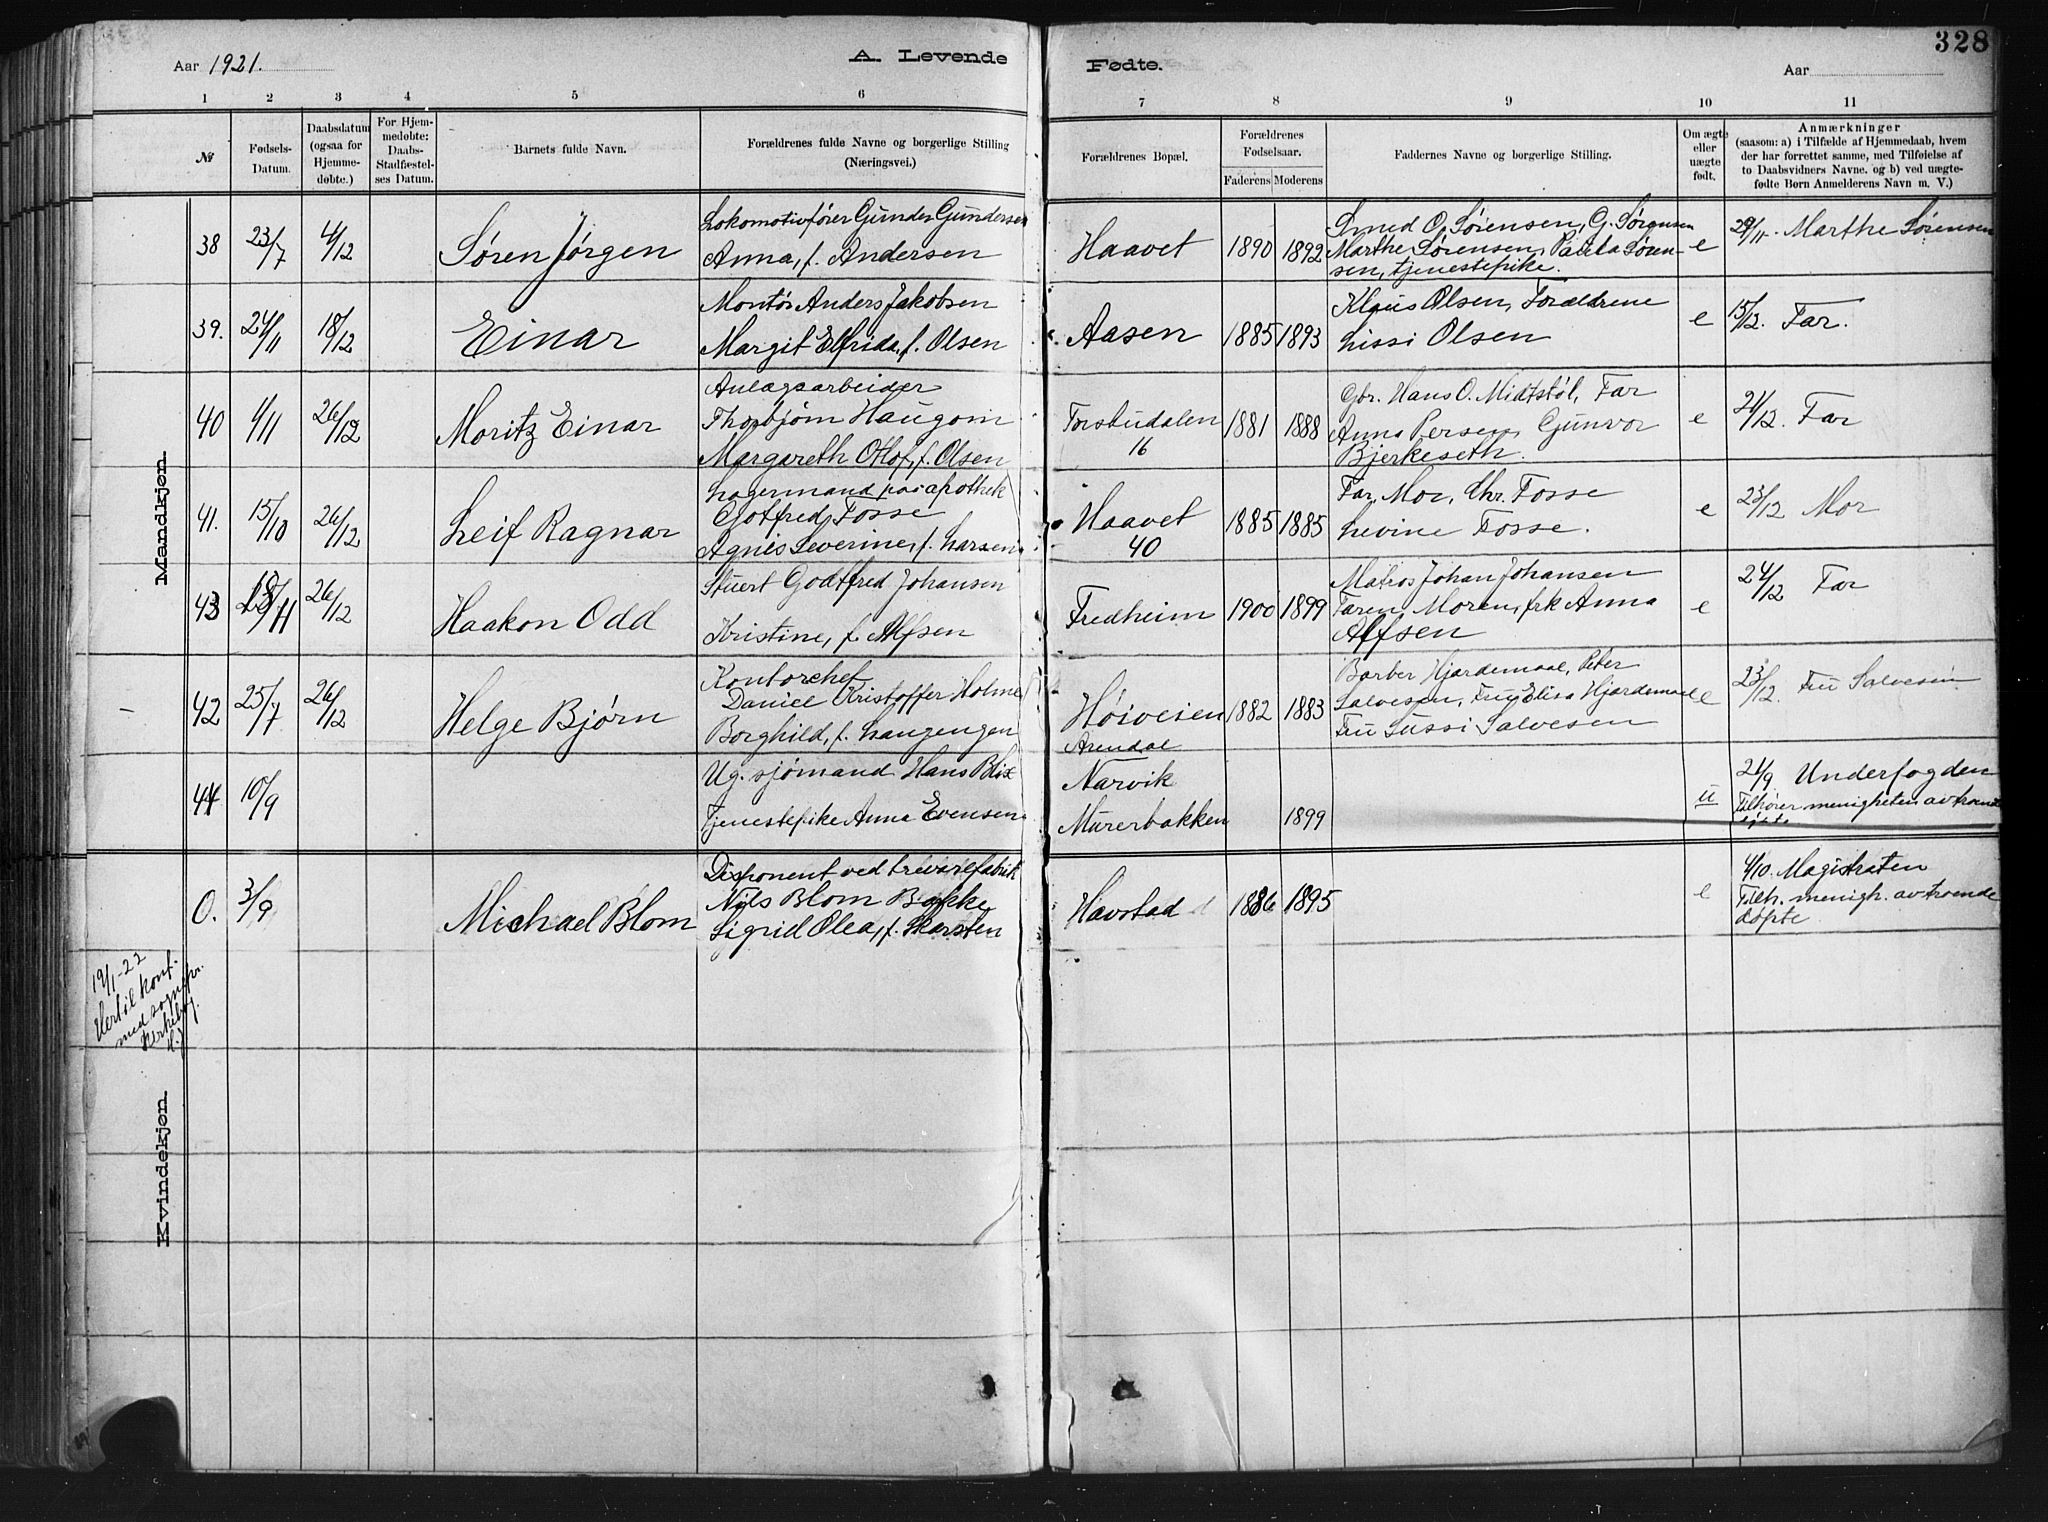 328
Aar 1921.
A. Levende
Fødte.
Aar
1 2 3 4 5 6 7 8 9 10 11
№
Fødsels-
Datum.
Daabsdatum
(ogsaa for
Hjemme-
døbte.)
For Hjem-
medøbte:
Daabs-
Stadfæstel-
ses Datum.
Barnets fulde Navn.
Forældrenes fulde Navne og borgerlige Stilling
(Næringsvei.)
Forældrenes Bopæl.
Forældrenes
Fødselsaar.
Faderens Moderens
Faddernes Navne og borgerlige Stilling.
Om ægte
eller
uægte
født.
Anmærkninger
(saasom: a) i Tilfælde af Hjemmedaab, hvem
der har forrettet samme, med Tilføielse af
to Daabsvidners Navne. og b) ved uægte-
fødte Børn Anmelderens Navn m. V.)
Mandkjøn.
38 23/7 4/12 Søren Jørgen
Lokomotivfører Gunder Gundersen
Anna, f. Andersen
Haavet 1890 1892
Smed O. Sørensen, G. Sørensen
Marthe Sørensen, Paula Søren-
sen, tjenestepike.
e 29/11. Marthe Sørensen
39. 24/11 18/12 Einar
Montør Anders Jakobsen
Margit Elfrida, f. Olsen
Aasen 1885 1893
Klaus Olsen, Forældrene
Lissi Olsen
e 15/12. Far.
40 4/11 26/12 Moritz Einar
Anlægsarbeider
Thorbjørn Haugom
Margareth Otlof, f. Olsen
Torbjudalen
16
1881 1888
Gbr. Hans O. Midtstøl, Far
Anna Persen, Gunvor
Bjerkeseth.
e 21/12. Far
41. 15/10 26/12 Leif Ragnar
Lagermand paa apothek
Gotfred Fosse
Agnes Severine, f. Larsen
Haavet
40
1885 1885
Far, Mor, Chr. Fosse
Levine Fosse.
e 23/12 Mor
43 26/12 Haakon Odd
Stuert Godtfred Johansen
Kristine, f. Alfsen
Fredheim 1900 1899
Matros Johan Johansen
Faren, Moren, frk Anna
Alfsen
e 24/12 Far
42 25/7 26/12 Helge Bjørn
Kontorchef
Daniel Kristoffer Holme
Borghild, f. Langengen
Høiveien
Arendal
1882 1883
Barber Hjardemaal, Peter
Salvesen, Fru Elisa Hjardemaal
Fru Sussi Salvesen
e 23/12. Fru Salvesen
44 10/9
Ug. sjømand Hans Blix
Tjenestepike Anna Evensen
Narvik
Murerbakken
1899
u 21/9 Underfogden
Tilhører menigheten av troende
døpte
O. 3/9 Michael Blom
Disponent ved trevarefabrik
Nils Blom Bakke
Sigrid Olea, f. Skarsten
Havstad 1886 1895
e 4/10. Magistraten
Tilh. menigh. av troende
døpte
19/1-22
Hertil konf.
med sognepr.
kirkebog.
Kvindekjøn.